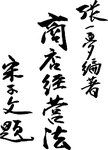 张一梦编著
商店经营法
宋子文题